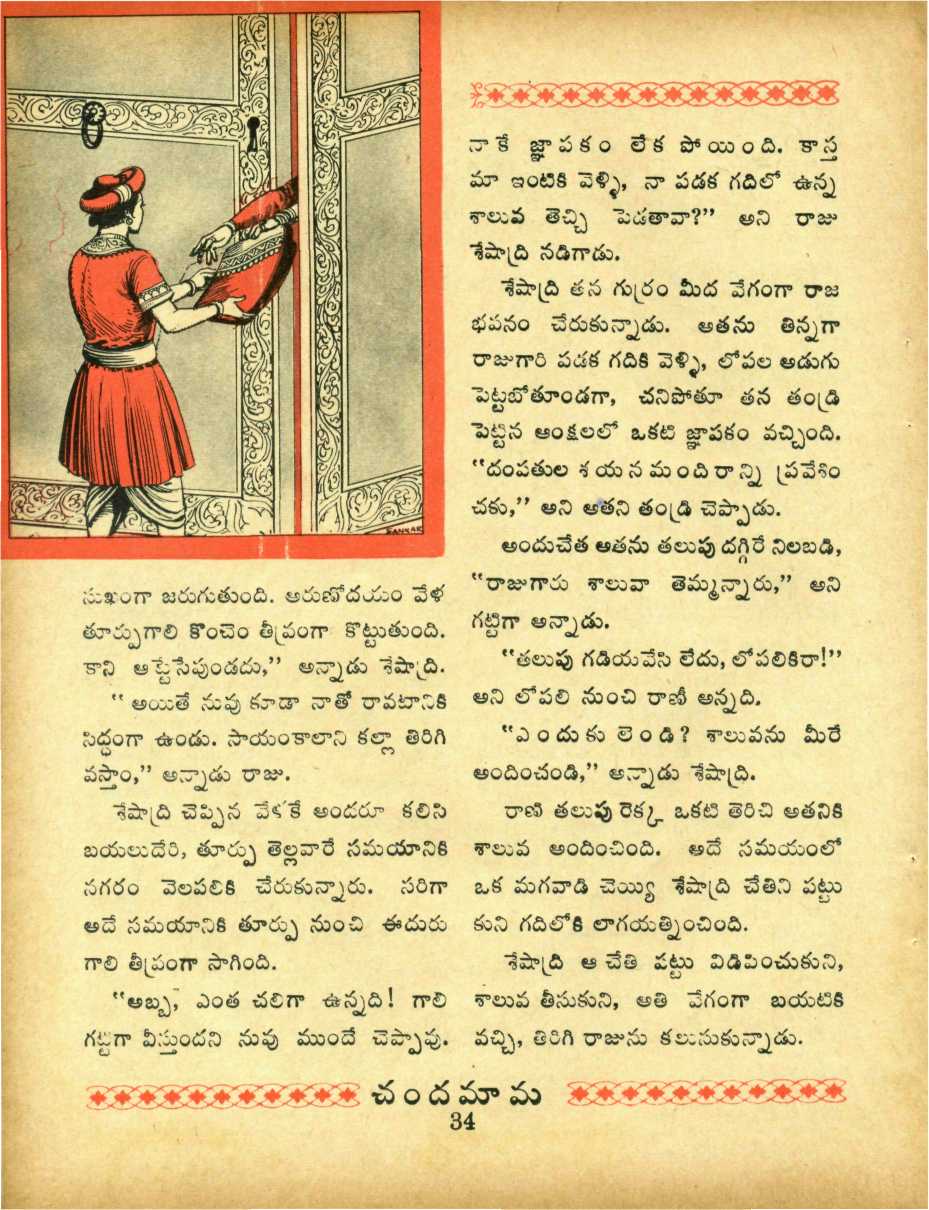 SANKAR
సుఖంగా జరుగుతుంది. అరుణోదయం వేళ
తూర్పుగాలి కొంచెం తీవ్రంగా కొట్టుతుంది.
కాని ఆట్టేసేపుండదు,’’ అన్నాడు శేషాద్రి.
‘‘అయితే నువు కూడా నాతో రావటానికి
సిద్ధంగా ఉండు. సాయంకాలాని కల్లా తిరిగి
వస్తాం,’’ అన్నాడు రాజు.
శేషాద్రి చెప్పిన వేళకే అందరూ కలిసి
బయలుదేరి, తూర్పు తెల్లవారే సమయానికి
నగరం వెలపలికి చేరుకున్నారు. సరిగా
అదే సమయానికి తూర్పు నుంచి ఈదురు
గాలి తీవ్రంగా సాగింది.
‘‘అబ్బ, ఎంత చలిగా ఉన్నది! గాలి
గట్టిగా వీస్తుందని నువు ముందే చెప్పావు.
నాకే జ్ఞాపకం లేక పోయింది. కాస్త
మా ఇంటికి వెళ్ళి, నా పడక గదిలో ఉన్న
శాలువ తెచ్చి పెడతావా?’’ అని రాజు
శేషాద్రి నడిగాడు.
శేషాద్రి తన గుర్రం మీద వేగంగా రాజ
భవనం చేరుకున్నాడు. అతను తిన్నగా
రాజుగారి పడక గదికి వెళ్ళి, లోపల అడుగు
పెట్టబోతూండగా, చనిపోతూ తన తండ్రి
పెట్టిన ఆంక్షలలో ఒకటి జ్ఞాపకం వచ్చింది.
‘‘దంపతుల శయనమందిరాన్ని ప్రవేశిం
చకు,’’ అని అతని తండ్రి చెప్పాడు.
అందుచేత అతను తలుపు దగ్గిరే నిలబడి,
‘‘రాజుగారు శాలువా తెమ్మన్నారు,’’ అని
గట్టిగా అన్నాడు.
‘‘తలుపు గడియవేసి లేదు, లోపలికిరా!’’
అని లోపలి నుంచి రాణీ అన్నది.
‘‘ఎందుకు లెండి? శాలువను మీరే
అందించండి,’’ అన్నాడు శేషాద్రి.
రాణి తలుపు రెక్క ఒకటి తెరిచి అతనికి
శాలువ అందించింది. అదే సమయంలో
ఒక మగవాడి చెయ్యి శేషాద్రి చేతిని పట్టు
కుని గదిలోకి లాగయత్నించింది.
శేషాద్రి ఆ చేతి పట్టు విడిపించుకుని,
శాలువ తీసుకుని, అతి వేగంగా బయటికి
వచ్చి, తిరిగి రాజును కలుసుకున్నాడు.
చందమామ
34